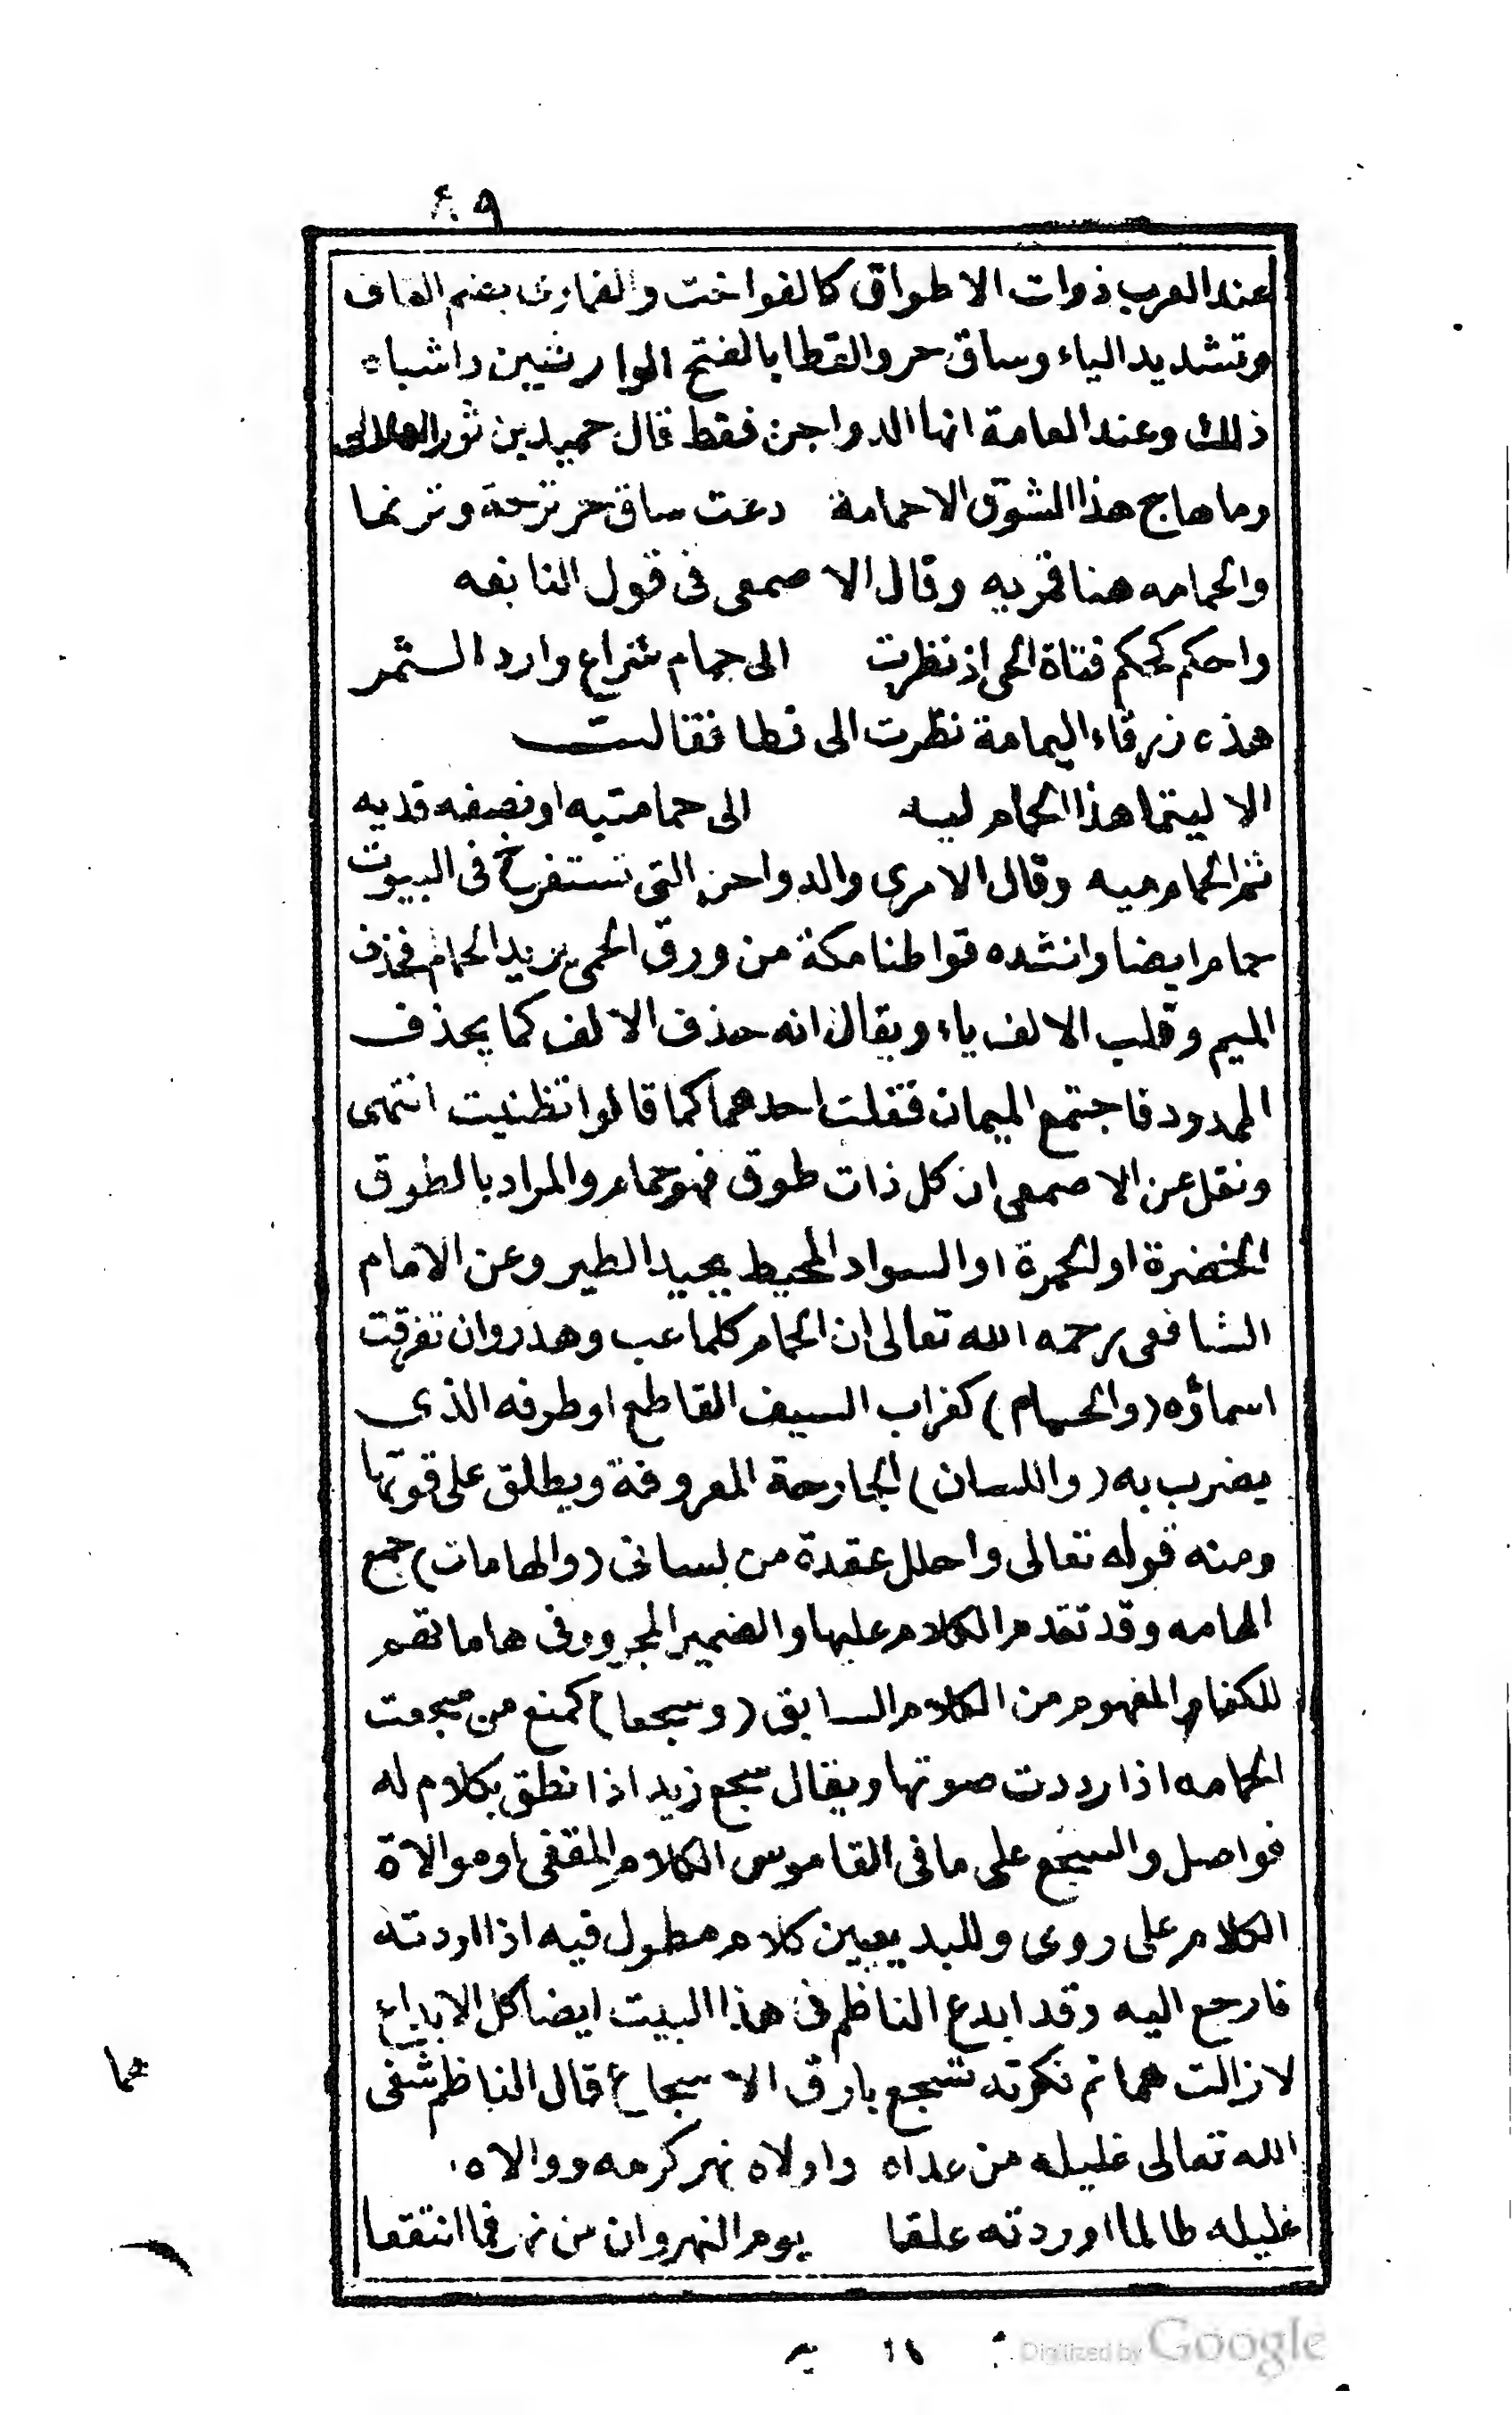 ٨٩
عند العرب ذوات الاطواق كالفواخت والقمارى بضم القاف
وتشديد الياء وساق حر والقطا بالفتح الوارشين واشباه
ذلك وعند العامة انها الدواجن فقط قال حميد بن ثور الهلالى
وما هاج هذا الشوق الا حمامة دعت ساق حر ترحة وترنما
والحمامه هنا قمريه وقال الاصمعى فى قول النابغه
واحكم كحكم فتاة الحى اذ نظرت الى حمام شراع وارد الثمر
هذه زرقاء اليمامة نظرت الى قطا فقالت
الا ليتما هذا الحمام ليه الى حمامتيه او نصفه قديه
ثم الحمام ميه وقال الامرى والدواجن التى تستفرخ فى البيوت
حمام ايضا وانشده قواطنا مكة من ورق الحمى يريد الحمام فحذف
الميم وقلب الالف ياء ويقال انه حذف الالف كما يحذف
الممدود فاجتمع الميمان فقلت احدهما كما قالوا تظنيت انتهى
ونقل عن الاصمعى ان كل ذات طوق فهو حمام والمراد بالطوق
الخضرة او الحمرة او السواد المحيط بجيد الطير وعن الامام
الشافعى رحمه الله تعالى ان الحمام كلما عب وهدر وان تفرقت
اسماؤه (والحسام) كغراب السيف القاطع او طرفه الذى
يضرب به (واللسان) الجارحة المعروفة ويطلق على قوتها
ومنه قوله تعالى واحلل عقدة من لسانى (والهامات) جمع
الهامه وقد تقدم الكلام عليها والضمير المجرور فى هاماتهم
للكفار المفهوم من الكلام السابق (وسجعا) كمنع من سجعت
الحمامه اذا رددت صوتها ويقال سجع زيد اذا نطق بكلام له
فواصل والسجع على ما فى القاموس الكلام المقفى او موالاة
الكلام على روى وللبديعيين كلام مطول فيه اذا اردته
فارجع اليه وقد ابدع الناظم فى هذا البيت ايضا كل الابداع
لا زالت همائم فكرته تسجع بارق الاسجاع قال الناظم شفى
الله تعالى غليله من عداه واولاه نهر كرمه ووالاه
غليله طالما اوردته علقا يوم النهروان من نهر فما انتقعا
عما
١٢
Digitized by Google